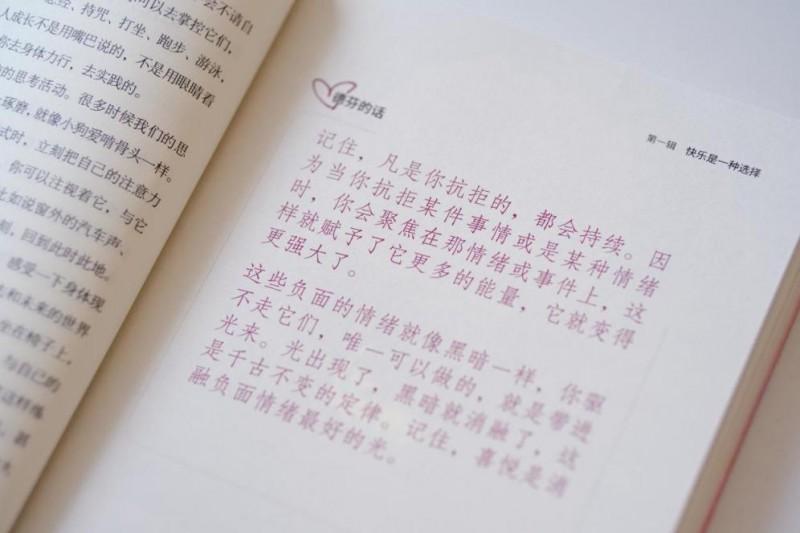 会不请自
经、持咒、打坐、跑步、游泳，
可以去掌控它们，
人成长不是用嘴巴说的，不是用眼睛看
去身体力行，去实践的。
的思考活动。很多时候我们的思
琢磨，就像小狗爱啃骨头一样。
试时，立刻把自己的注意力
你可以注视着它，与它
比如说窗外的汽车声、
刻，回到此时此地。
感受一下身体现
和未来的世界
坐在椅子上，
与自己的
德芬的话
第一辑 快乐是一种选择
记住，凡是你抗拒的，都会持续。因
为当你抗拒某件事情或是某种情绪
时，你会聚焦在那情绪或事件上，这
样就赋予了它更多的能量，它就变得
更强大了。
这些负面的情绪就像黑暗一样，你驱
不走它们，唯一可以做的，就是带进
光来。光出现了，黑暗就消融了，这
是千古不变的定律。记住，喜悦是消
融负面情绪最好的光。